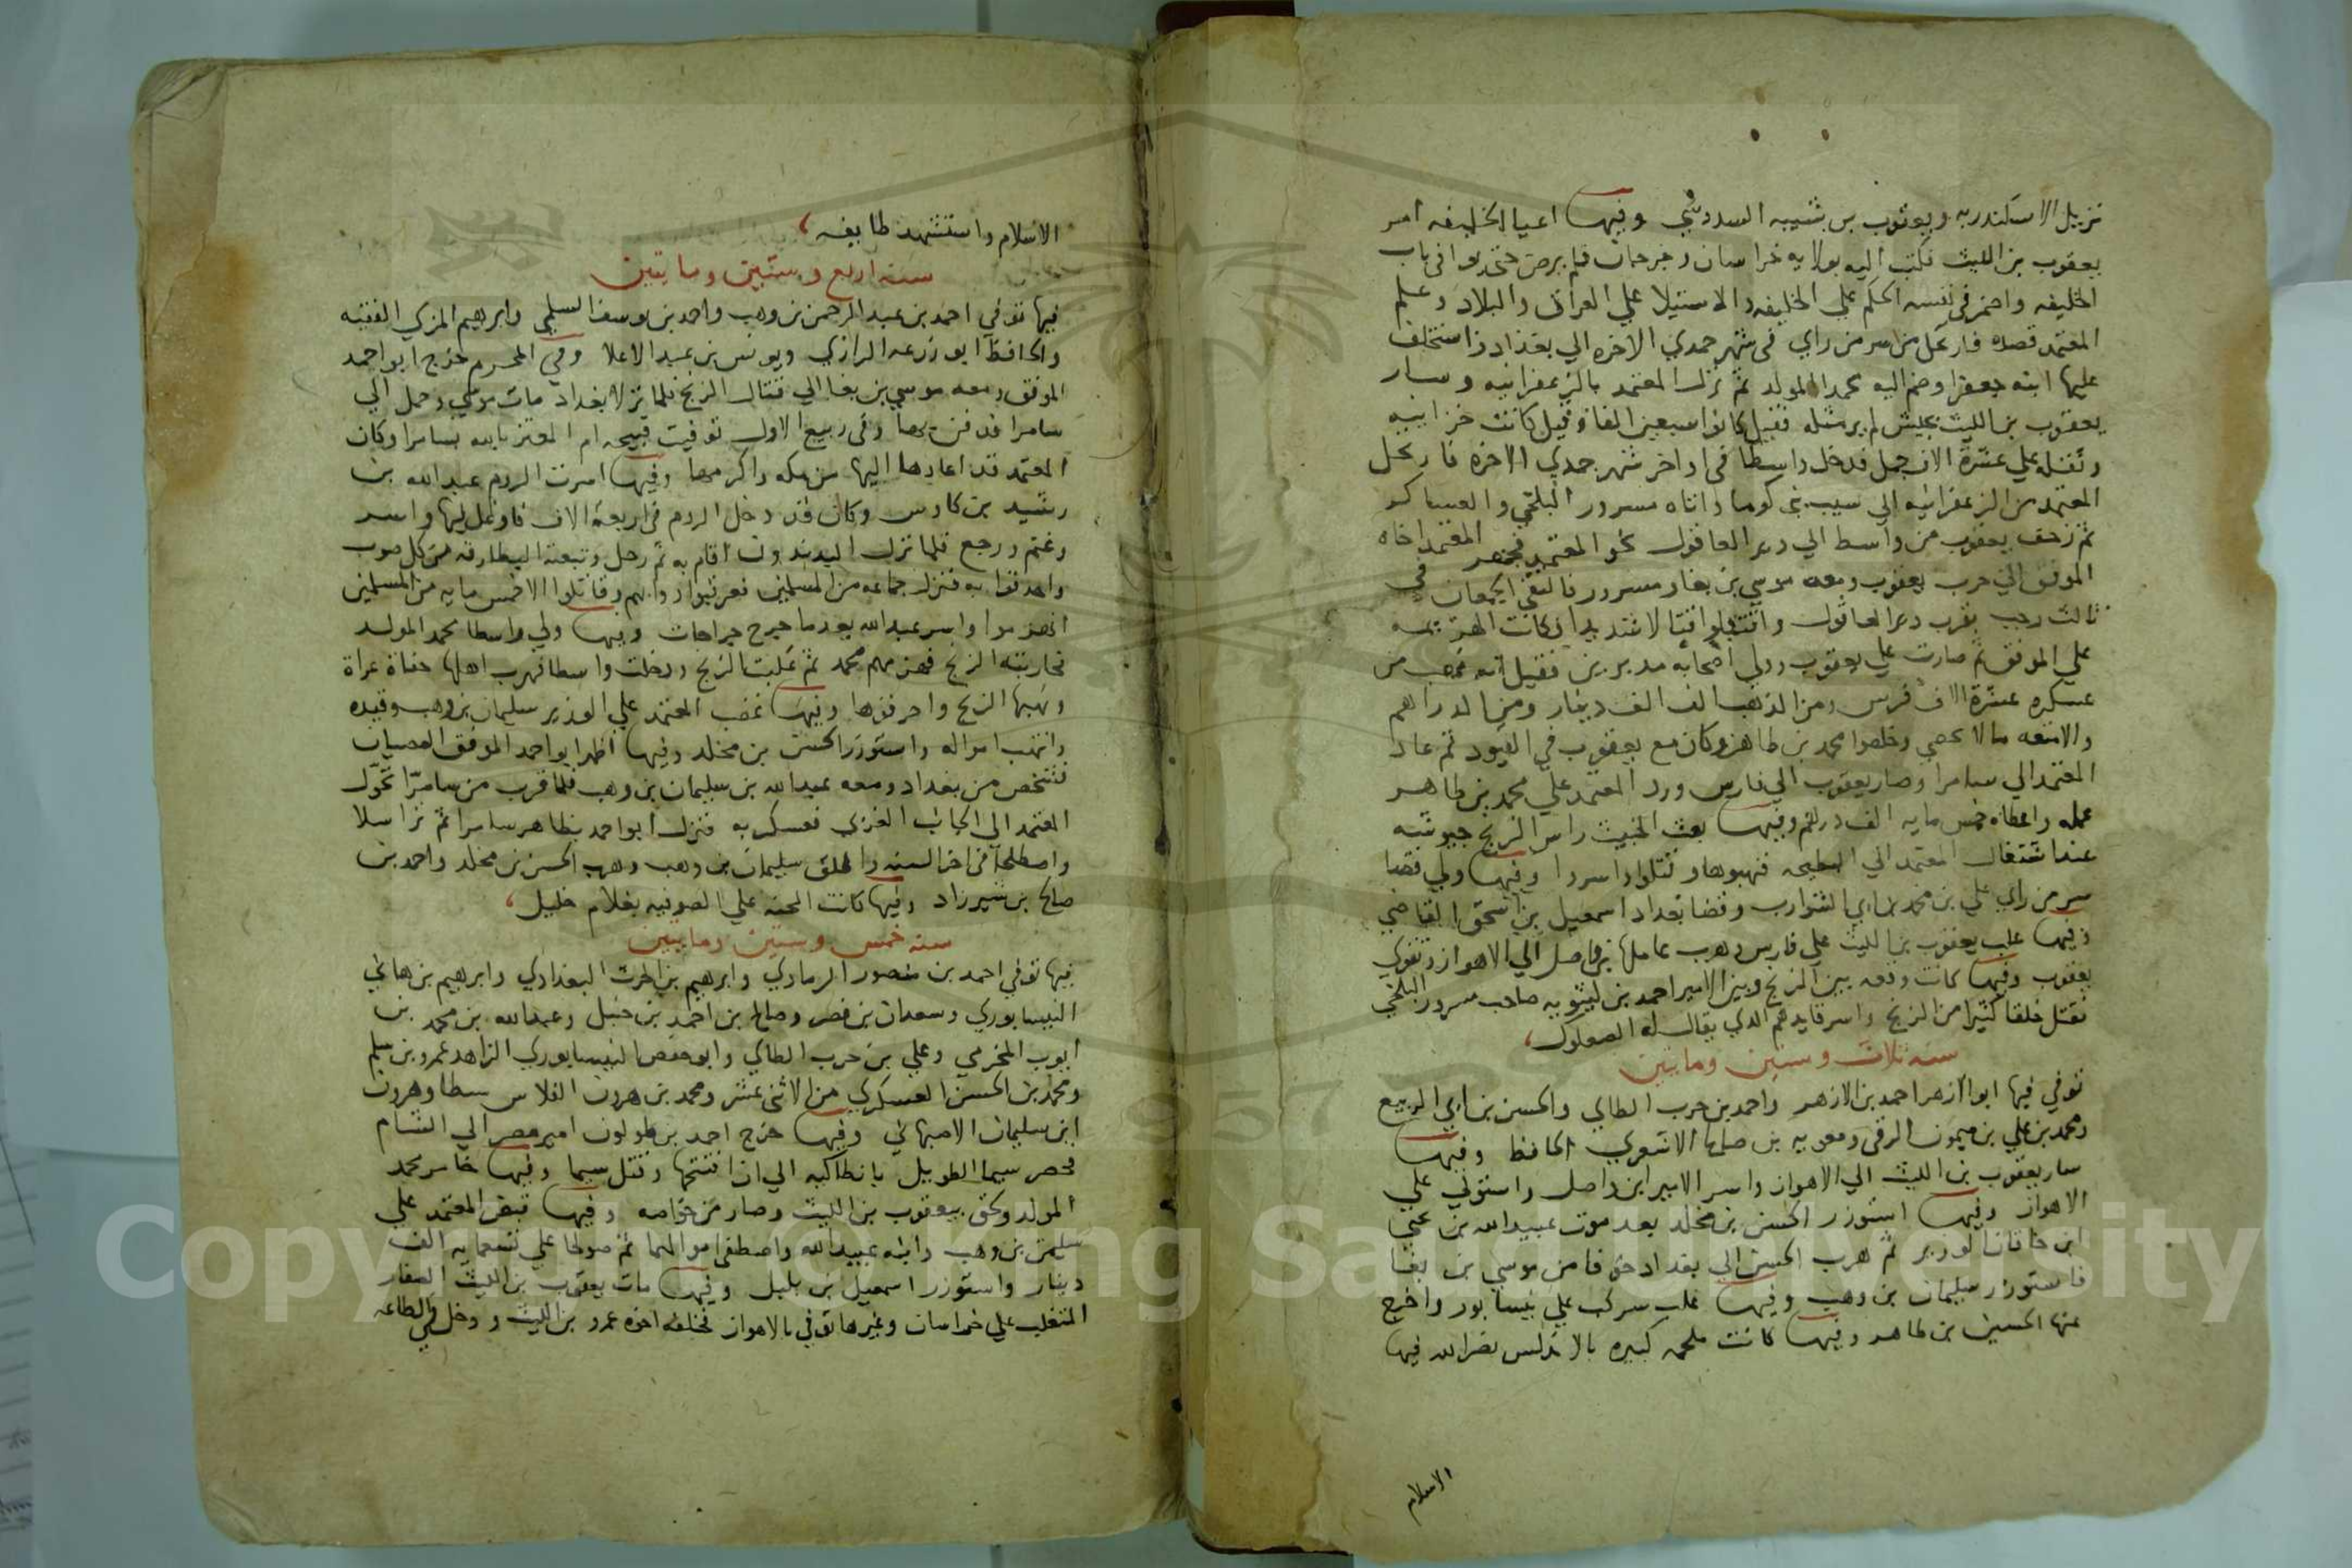 نزيل الاسكندريه ويعقوب بن شيبه السدوسي وفيها اعيا الخليفه امر
يعقوب بن الليث فكتب اليه بولايه خراسان وجرجان فلم يرض حتى يوافى باب
الخليفه واضمر فى نفسه الحكم علي الخليفه والاستيلا علي العراق والبلاد وعلم
المعتمد قصده فارتحل من سر من راي فى شهر جمدي الاخره الي بغداد واستخلف
عليها ابنه جعفرا وضم اليه محمد المولد ثم نزل المعتمد بالزعفرانيه وسار
يعقوب بن الليث بجيش لم ير مثله فقيل كانوا سبعين الفا وقيل كانت خزاينه
وثقله علي عشرة الاف جمل فدخل واسطا فى اواخر شهر جمدي الاخره فارتحل
المعتمد من الزعفرانيه الي سيب بنى كوما واتاه مسرور البلخي والعساكر
ثم زحف يعقوب من واسط الي دير العاقول نحو المعتمد فجهز المعتمد اخاه
الموفق الي حرب يعقوب ومعه موسي بن بغا ومسرور فالتقى الجمعان في
ثالث رجب بقرب دير العاقول واقتتلوا قتالا شديدا فكانت الهزيمه
علي الموفق ثم صارت علي يعقوب وولي اصحابه مدبرين فقيل انه نهب من
عسكره عشرة الاف فرس ومن الذهب الف الف دينار ومن الدراهم
والامتعه مالا يحصي وخلصوا محمد بن طاهر وكان مع يعقوب في القيود ثم عاد
المعتمد الي سامرا وصار يعقوب الي فارس ورد المعتمد علي محمد بن طاهر
عمله واعطاه خمس مايه الف درهم وفيها بعث الخبيث راس الزنج جيوشه
عند اشتغال المعتمد الي البطيحه فنهبوها وقتلوا واسروا وفيها ولي قضا
سر من راي علي بن محمد بن ابي الشوارب وقضا بغداد اسمعيل بن اسحق القاضي
وفيها غلب يعقوب بن الليث علي فارس وهرب عاملها بن واصل الي الاهواز وتقوي
يعقوب وفيها كانت وقعه بين الزنج وبين الامير احمد بن ليثويه صاحب مسرور البلخي
فقتل خلقا كثيرا من الزنج واسر قايدهم الذي يقال له الصعلوك
سنه ثلاث وستين ومايتين
توفي فيها ابو الازهر احمد بن الازهر واحمد بن حرب الطايي والحسن بن ابي الربيع
ومحمد بن علي بن ميمون الرقى ومعويه بن صالح الاشعري الحافظ وفيها
سار يعقوب بن الليث الي الاهواز واسر الامير ابن واصل واستولي علي
الاهواز وفيها استوزر الحسن بن مخلد بعد موت عبيد الله بن يحيي
ابن خاقان الوزير ثم هرب الحسن الي بغداد خوفا من موسي بن بغا
فاستوزر سليمان بن وهب وفيها غلب سركب علي نيسابور واخرج
عنها الحسين بن طاهر وفيها كانت ملحمه كبيره بالاندلس نصر الله فيها
الاسلام
الاسلام واستشهد طايفه
سنه اربع وستين ومايتين
فيها توفي احمد بن عبد الرحمن بن وهب واحمد بن يوسف السلمي وابرهيم المزني الفقيه
والحافظ ابو زرعه الرازي ويونس بن عبد الاعلا وفي المحرم خرج ابو احمد
الموفق ومعه موسي بن بغا الي قتال الزنج فلما نزلا بغداد مات موسي وحمل الي
سامرا فدفن بها وفى ربيع الاول توفيت قبيحه ام المعتز بالله بسامرا وكان
المعتمد قد اعادها اليها من مكه واكرمها وفيها اسرت الروم عبد الله بن
رشيد بن كاوس وكان قد دخل الروم فى اربعة الاف فاوغل فيها واسر
وغنم ورجع فلما نزل البدندون اقام به ثم رحل وتبعته البطارقه من كل صوب
واحدقوا به فنزل جماعه من المسلمين فعرقبوا دوابهم وقاتلوا الا خمس مايه من المسلمين
انهزموا واسر عبد الله بعد ما جرح جراحات وفيها ولي واسطا محمد المولد
فحاربته الزنج فهزمهم محمد ثم غلبت الزنج ودخلت واسطا فهرب اهلها حفاة عراة
ونهبها الزنج واحرقوها وفيها غضب المعتمد علي الوزير سليمان بن وهب وقيده
وانتهب امواله واستوزر الحسن بن مخلد وفيها اظهر ابو احمد الموفق العصيان
فشخص من بغداد ومعه عبيد الله بن سليمان بن وهب فلما قرب من سامرّا تحوّل
المعتمد الي الجانب الغربي فعسكر به فنزل ابو احمد بظاهر سامرا ثم تراسلا
واصطلحا فى اخر السنه واطلق سليمان بن وهب وهرب الحسن بن مخلد واحمد بن
صالح بن شيرزاد وفيها كانت المحنه علي الصوفيه بغلام خليل
سنه خمس وستين ومايتين
فيها توفي احمد بن منصور الرمادي وابرهيم بن الحرث البغدادي وابرهيم بن هاني
النيسابوري وسعدان بن نصر وصالح بن احمد بن حنبل وعبد الله بن محمد بن
ايوب المخرمي وعلي بن حرب الطاي وابو حفص النيسابوري الزاهد عمرو بن سلم
ومحمد بن الحسن العسكري من الاثنى عشر ومحمد بن هرون الفلاس شيطا وهرون
ابن سليمان الاصبهاني وفيها خرج احمد بن طولون امير مصر الي الشام
فحصر سيما الطويل بانطاكيه الي ان افتتحها وقتل سيما وفيها خامر محمد
المولد ولحق بيعقوب بن الليث وصار من خواصه وفيها قبض المعتمد علي
سليمن بن وهب وابنه عبيد الله واصطفى اموالهما ثم صولحا علي تسعمايه الف
دينار واستوزر اسمعيل بن بلبل وفيها مات يعقوب بن الليث الصفار
المتغلب علي خراسان وغيرها توفي بالاهواز فخلفه اخوه عمرو بن الليث ودخل في الطاعه
Copyright © King Saud University
1957